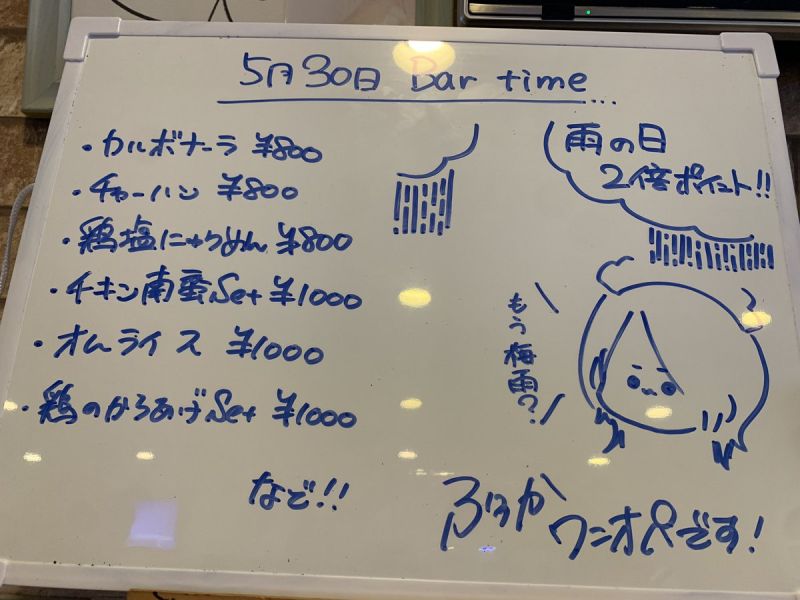 5月30日 Bar time
・カルボナーラ ¥800
・チャーハン ¥800
・鶏塩にゅうめん ¥800
・チキン南蛮Set ¥1000
・オムライス ¥1000
・鶏のからあげSet ¥1000
など!!
雨の日
2倍ポイント!!
もう梅雨?
ふうか
ワンオペです!